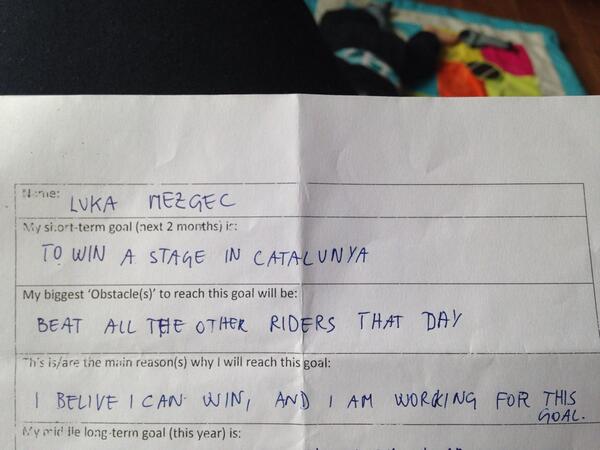 Name: LUKA MEZGEC
My short-term goal (next 2 months) is:
TO WIN A STAGE IN CATALUNYA
My biggest 'Obstacle(s)' to reach this goal will be:
BEAT ALL THE OTHER RIDERS THAT DAY
This is/are the main reason(s) why I will reach this goal:
I BELIVE I CAN WIN, AND I AM WORKING FOR THIS
GOAL.
My middle long-term goal (this year) is: